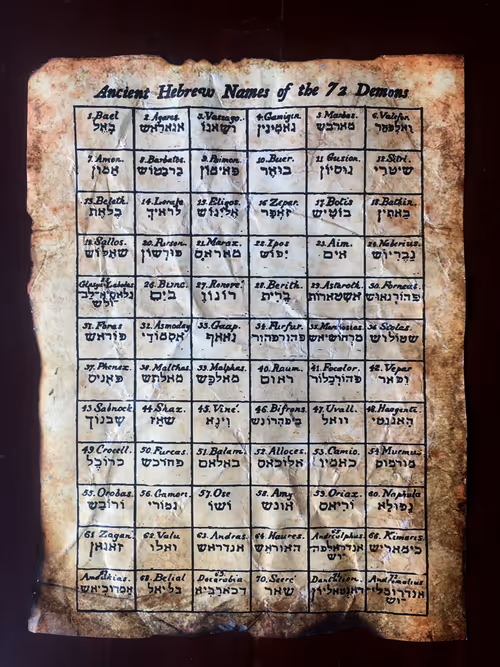 Ancient Hebrew Names of the 72 Demons
1. Bael
באל
2. Agares
אגאראש
3. Vassago.
ושאגו
4. Gamigin.
גאמיגין
5. Marbas.
מארבש
6. Valefor.
ואלפהר
7. Amon.
אמון
8. Barbatos.
ברבטוש
9. Paimon.
פאימון
10. Buer.
בואר
11. Gusion.
גוסיון
12. Sitri.
שיטרי
13. Beleth.
בלאת
14. Leraje
לראיך
15. Eligos.
אליגוש
16. Zepar.
זאפר
17. Botis
בוטיש
18. Bathin.
באתין
19. Sallos.
שאלוש
20. Purson.
פורשון
21. Marax.
מאראץ
22. Ipos
יפוש
23. Aim.
אים
24. Naberius.
נבריוש
25
Glasya-Labolas.
26. Bune.
בים
27. Ronove.
רונוו
28. Berith.
ברית
29. Astaroth
אשטארות
30. Forneus.
פהורנאוש
31. Foras
פוראש
32. Asmoday
אסמודי
33. Gaap.
גאאף
34. Furfur.
פהורפהור
35. Marchosias
מרחושיאש
36. Stolas.
שטולוש
37. Phenex.
פאניס
38. Malthas.
מאלתש
39. Malphas.
מאלפש
40. Raum.
ראום
41. Focalor.
פהורכלור
42. Vepar
ופאר
43. Sabnock
שבנוך
44. Shax.
שאז
45. Viné.
וינא
46. Bifrons.
ביפהרונש
47. Uvall.
וואל
48. Haagenti.
האגנטי
49. Crocell.
כרוכל
50. Furcas.
פהורכש
51. Balam.
באלאם
52. Alloces.
אלוכאס
53. Camio.
כאמיו
54. Murmus
מורמוס
55. Orobas.
ורובש
56. Gamori.
גמורי
57. Ose
ושו
58. Amy
אונש
59. Oriax.
וריאס
60. Naphula
נפולא
61. Zagan.
זאגאן
62. Valu
ואלו
63. Andras.
אנדראש
64. Haures.
האוראש
65
Andrealphus.
אנדראלפה
וש
66. Kimaris.
כימאריש
67
Amdukias.
אמדוכיאש
68. Belial
בליאל
69.
Decarabia
דכארביא
70. Seere
שאר
71
Dantalion.
דאנטאליון
72
Andromalius
אנדרומלי
וש